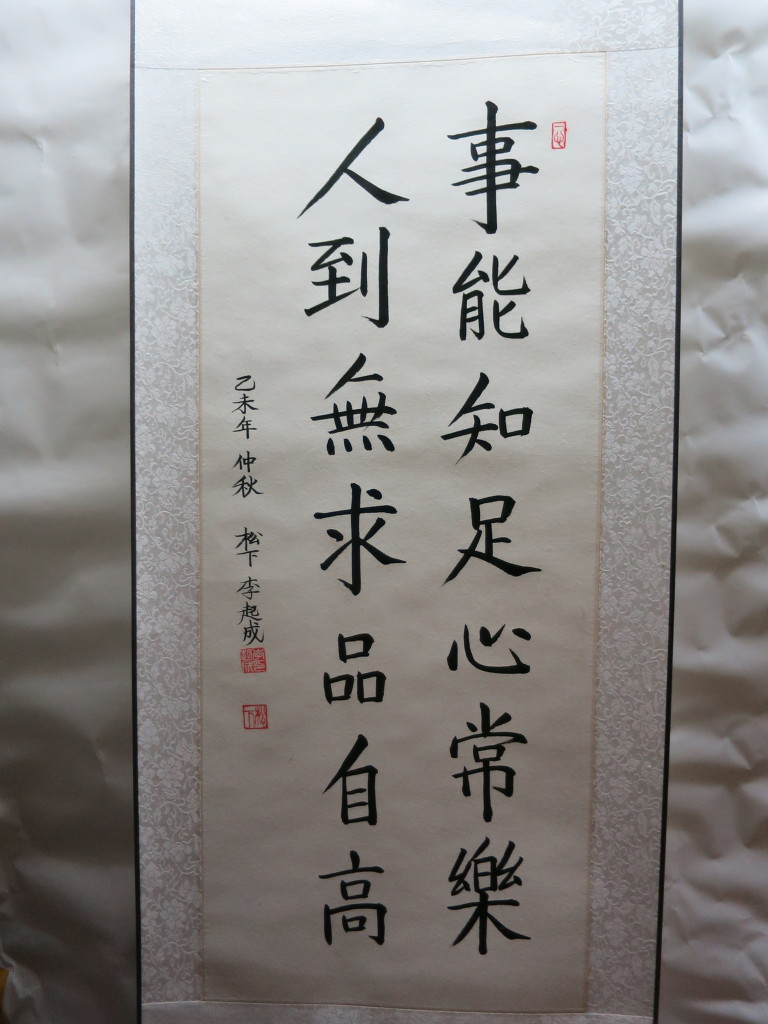 事能知足心常樂
人到無求品自高
乙未年 仲秋 松下 李起成